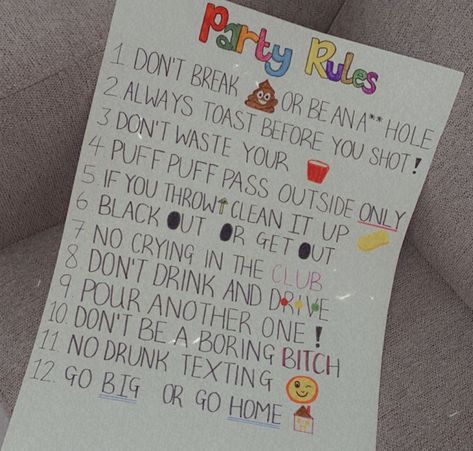 Party Rules
1 DON'T BREAK 💩 OR BE AN A**HOLE
2 ALWAYS TOAST BEFORE YOU SHOT!
3 DON'T WASTE YOUR
4 PUFF PUFF PASS OUTSIDE ONLY
5. IF YOU THROW↑ CLEAN IT UP
6 BLACK OUT OR GET OUT
7. NO CRYING IN THE CLUB
8 DON'T DRINK AND DRIVE
9 POUR ANOTHER ONE!
10. DON'T BE A BORING BITCH
11. NO DRUNK TEXTING 😉
12. GO BIG OR GO HOME 🏠